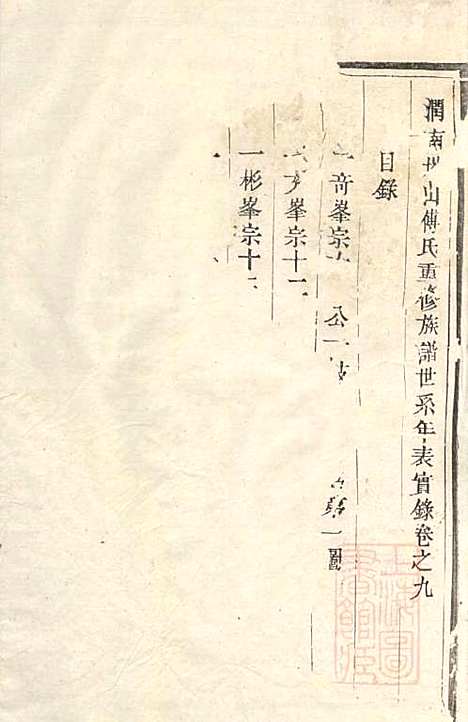 潤南山傅氏重修族譜世系年表實錄卷之九
目錄
一奇峯宗 公一
峯宗十二
一彬峯宗十
一圖
上海圖書館藏